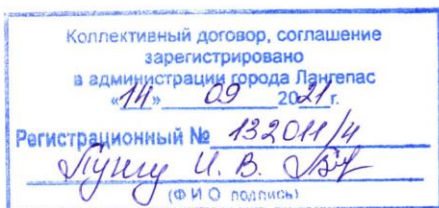 Коллективный договор, соглашение
зарегистрировано
в администрации города Лангепас
«14» 09 2021 г.
Регистрационный № 132011/4
И. В.
(Ф И О подпись)